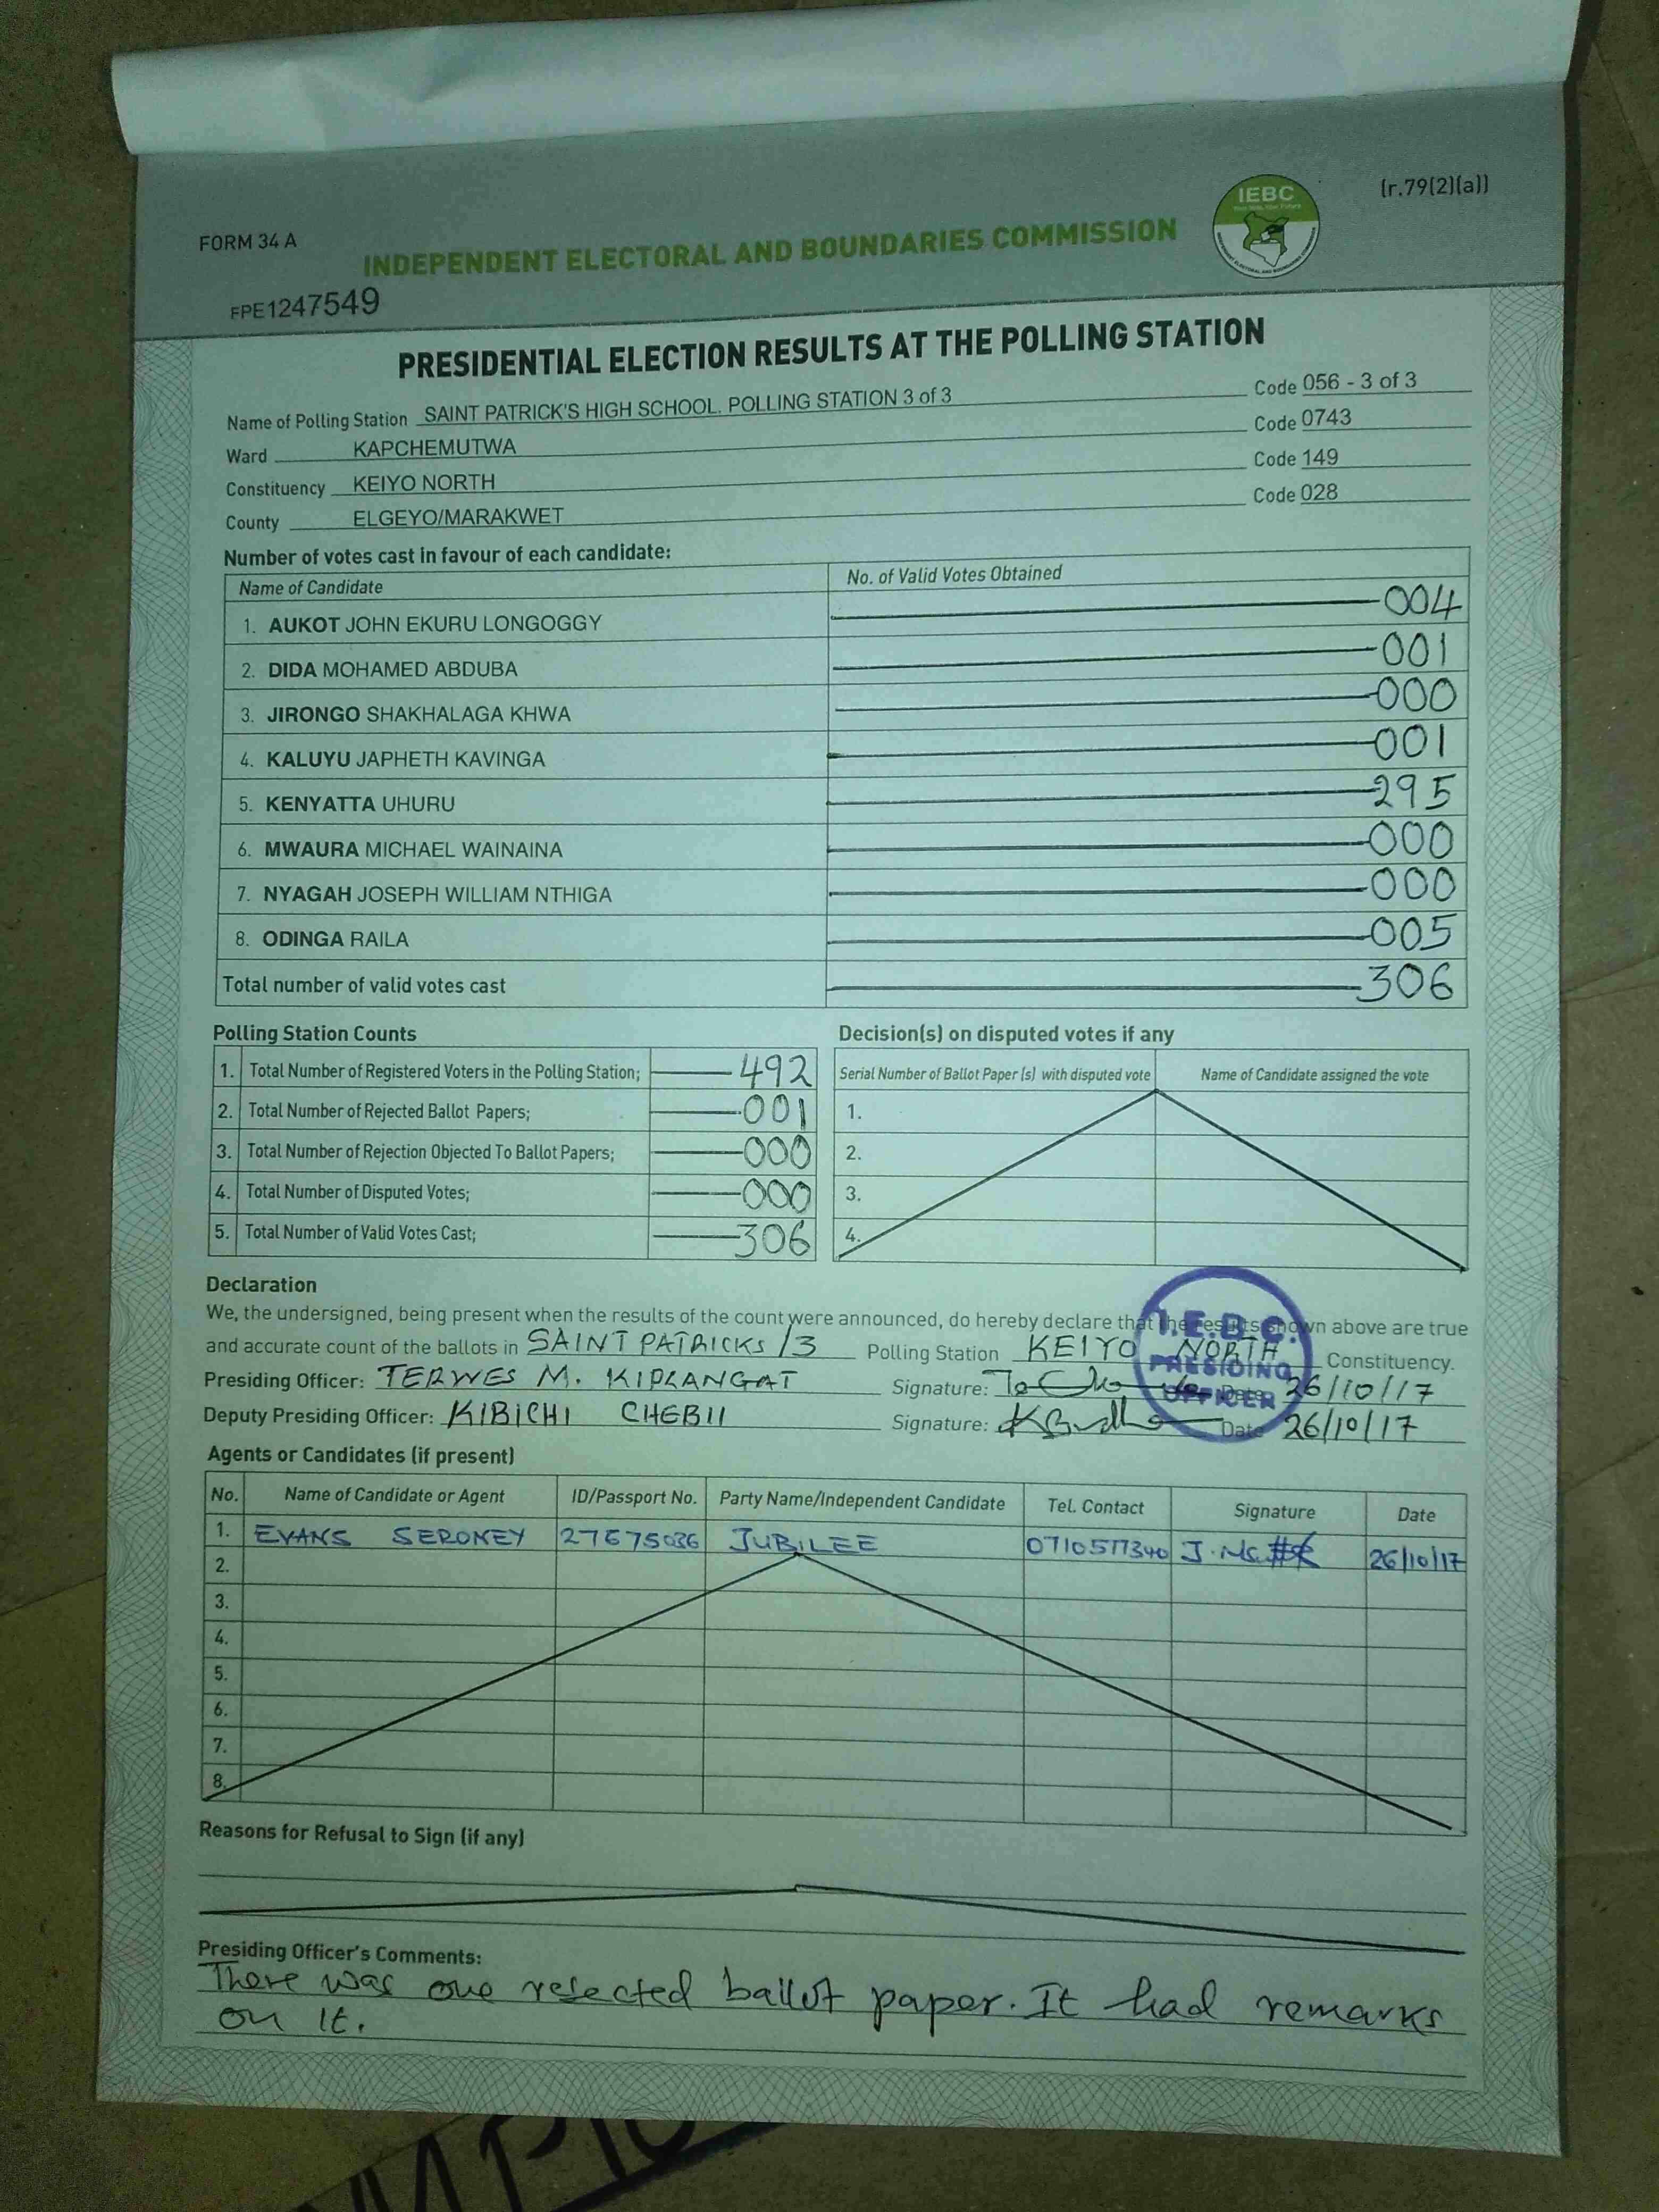 (r.79(2)(a))
IEBC
FORM 34 A
INDEPENDENT ELECTORAL AND BOUNDARIES COMMISSION
FPE1247549
PRESIDENTIAL ELECTION RESULTS AT THE POLLING STATION
Name of Polling Station SAINT PATRICK'S HIGH SCHOOL. POLLING STATION 3 of 3 Code 056 - 3 of 3
Ward KAPCHEMUTWA Code 0743
Constituency KEIYO NORTH Code 149
County ELGEYO/MARAKWET Code 028
Number of votes cast in favour of each candidate:
Name of Candidate No. of Valid Votes Obtained
1. AUKOT JOHN EKURU LONGOGGY 004
2. DIDA MOHAMED ABDUBA 001
3. JIRONGO SHAKHALAGA KHWA 000
4. KALUYU JAPHETH KAVINGA 001
5. KENYATTA UHURU 295
6. MWAURA MICHAEL WAINAINA 000
7. NYAGAH JOSEPH WILLIAM NTHIGA 000
8. ODINGA RAILA 005
Total number of valid votes cast 306
Polling Station Counts
1. Total Number of Registered Voters in the Polling Station; 492
2. Total Number of Rejected Ballot Papers; 001
3. Total Number of Rejection Objected To Ballot Papers; 000
4. Total Number of Disputed Votes; 000
5. Total Number of Valid Votes Cast; 306
Decision(s) on disputed votes if any
Serial Number of Ballot Paper (s) with disputed vote Name of Candidate assigned the vote
1.
2.
3.
4.
Declaration
We, the undersigned, being present when the results of the count were announced, do hereby declare that the results shown above are true
and accurate count of the ballots in SAINT PATRICKS /3 Polling Station KEIYO NORTH Constituency.
Presiding Officer: TERWES M. KIPLANGAT Signature: Date 26/10/17
Deputy Presiding Officer: KIBICHI CHEBII Signature: Date 26/10/17
I.E.B.C.
PRESIDING
OFFICER
Agents or Candidates (if present)
No. Name of Candidate or Agent ID/Passport No. Party Name/Independent Candidate Tel. Contact Signature Date
1. EVANS SERONEY 27675036 JUBILEE 0710577340 26/10/17
2.
3.
4.
5.
6.
7.
8.
Reasons for Refusal to Sign (if any)
Presiding Officer's Comments:
There was one rejected ballot paper. It had remarks
on it.